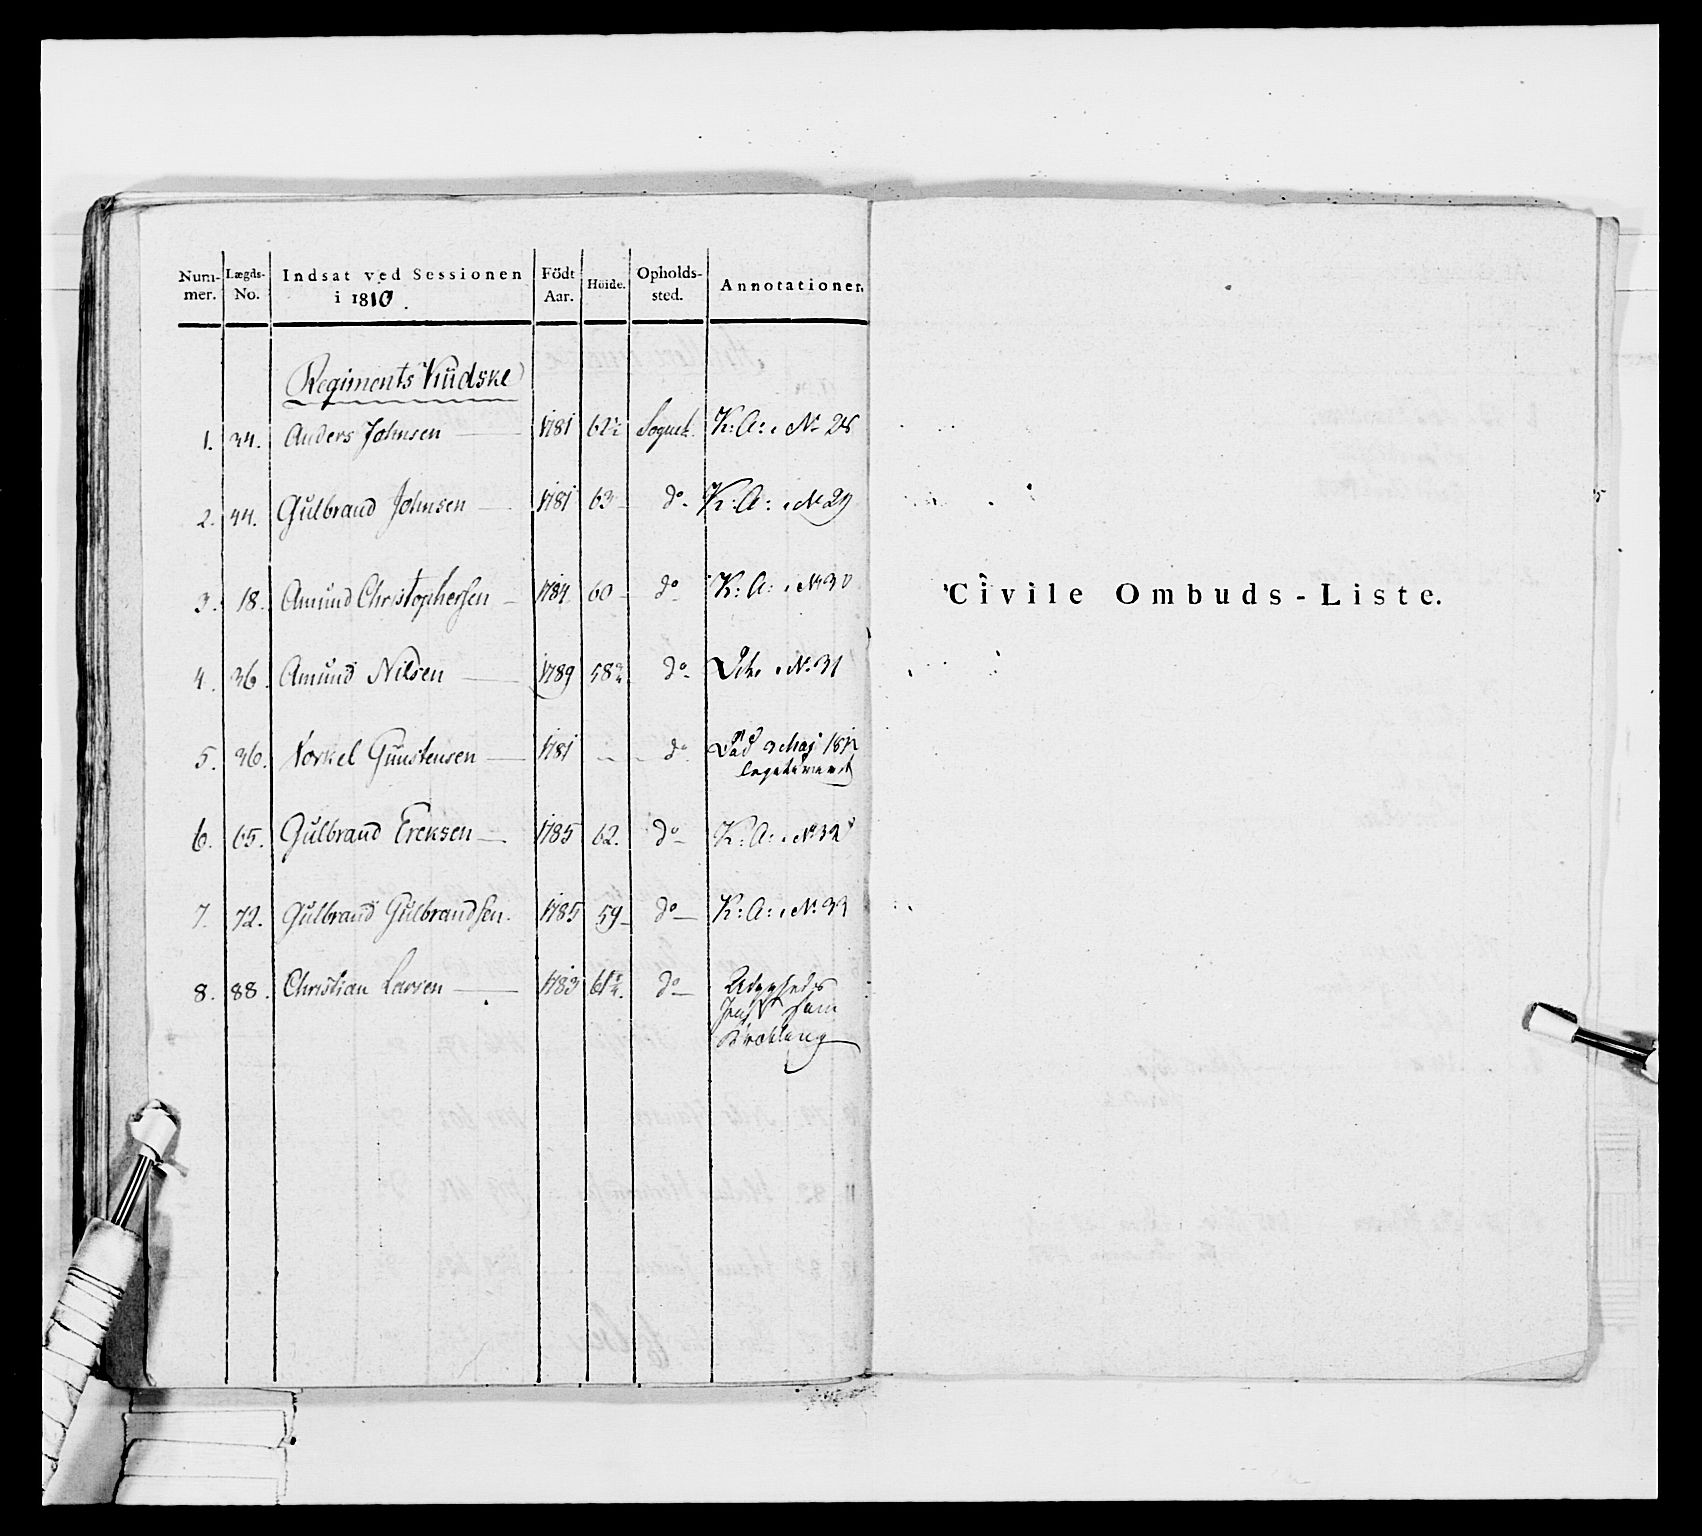 Num-mer. Lægds-No. Indsat ved Sessionen i 1810. Födt Aar. Höide. Opholds-sted. Annotationer.
Regiments Kudske
1. 34. Anders Johnsen 1781 62½ Sognet. K: A: No 28
2. 44. Gulbrand Johnsen 1781 63 do K: A: No 29
3. 18. Amund Christophersen 1784 60 do K: A: No 30
4. 36. Amund Nilsen 1789 58¾ do No 31
5. 36. Torkel Gunstensen 1781 do Död 3 Maj
6. 65. Gulbrand Ereksen 1785 62. do K: A: No 32
7. 72. Gulbrand Gulbrandsen. 1785 59 do K: A: No 33
8. 88. Christian Larsen 1783 do
Civile Ombuds-Liste.